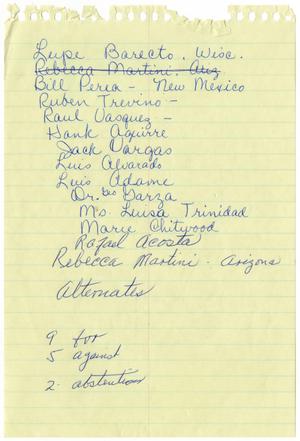 Lupe Barecto, Wisc.
Rebecca Martini, Ariz
Bill Perea - New Mexico
Ruben Trevino -
Raul Vasquez -
Hank Aguirre
Jack Vargas
Luis Alvarado
Luis Adame
Dr. Geo Garza
Ms. Luisa Trinidad
Marie Chitwood
Rafael Acosta
Rebecca Martini - Arizona
Alternates
9 for
5 against
2. abstentions